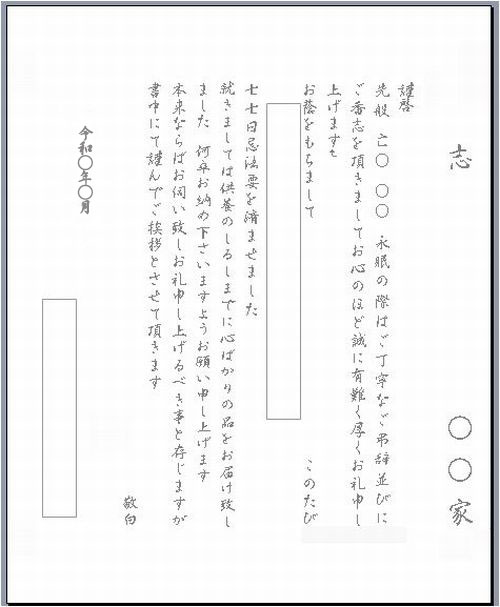 志 〇〇家
謹啓
先般 亡〇 〇〇 永眠の際はご丁寧なご弔辞並びに
ご香志を頂きましてお心のほど誠に有難く厚くお礼申し
上げます
お蔭をもちまして このたび
七七日忌法要を済ませました
就きましては供養のしるしまでに心ばかりの品をお届け致し
ました 何卒お納め下さいますようお願い申し上げます
本来ならばお伺い致しお礼申し上げるべき事と存じますが
書中にて謹んでご挨拶とさせて頂きます
敬白
令和〇年〇月